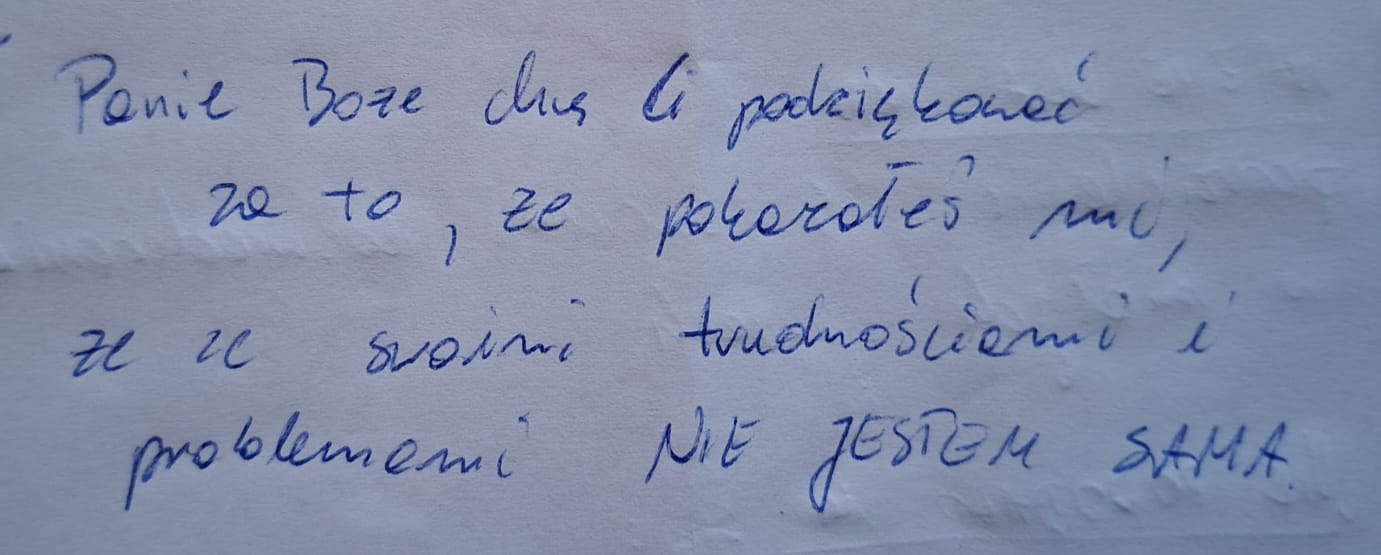 Panie Boże chcę Ci podziękować
za to, że pokazałeś mi,
że ze swoimi trudnościami i
problemami NIE JESTEM SAMA.